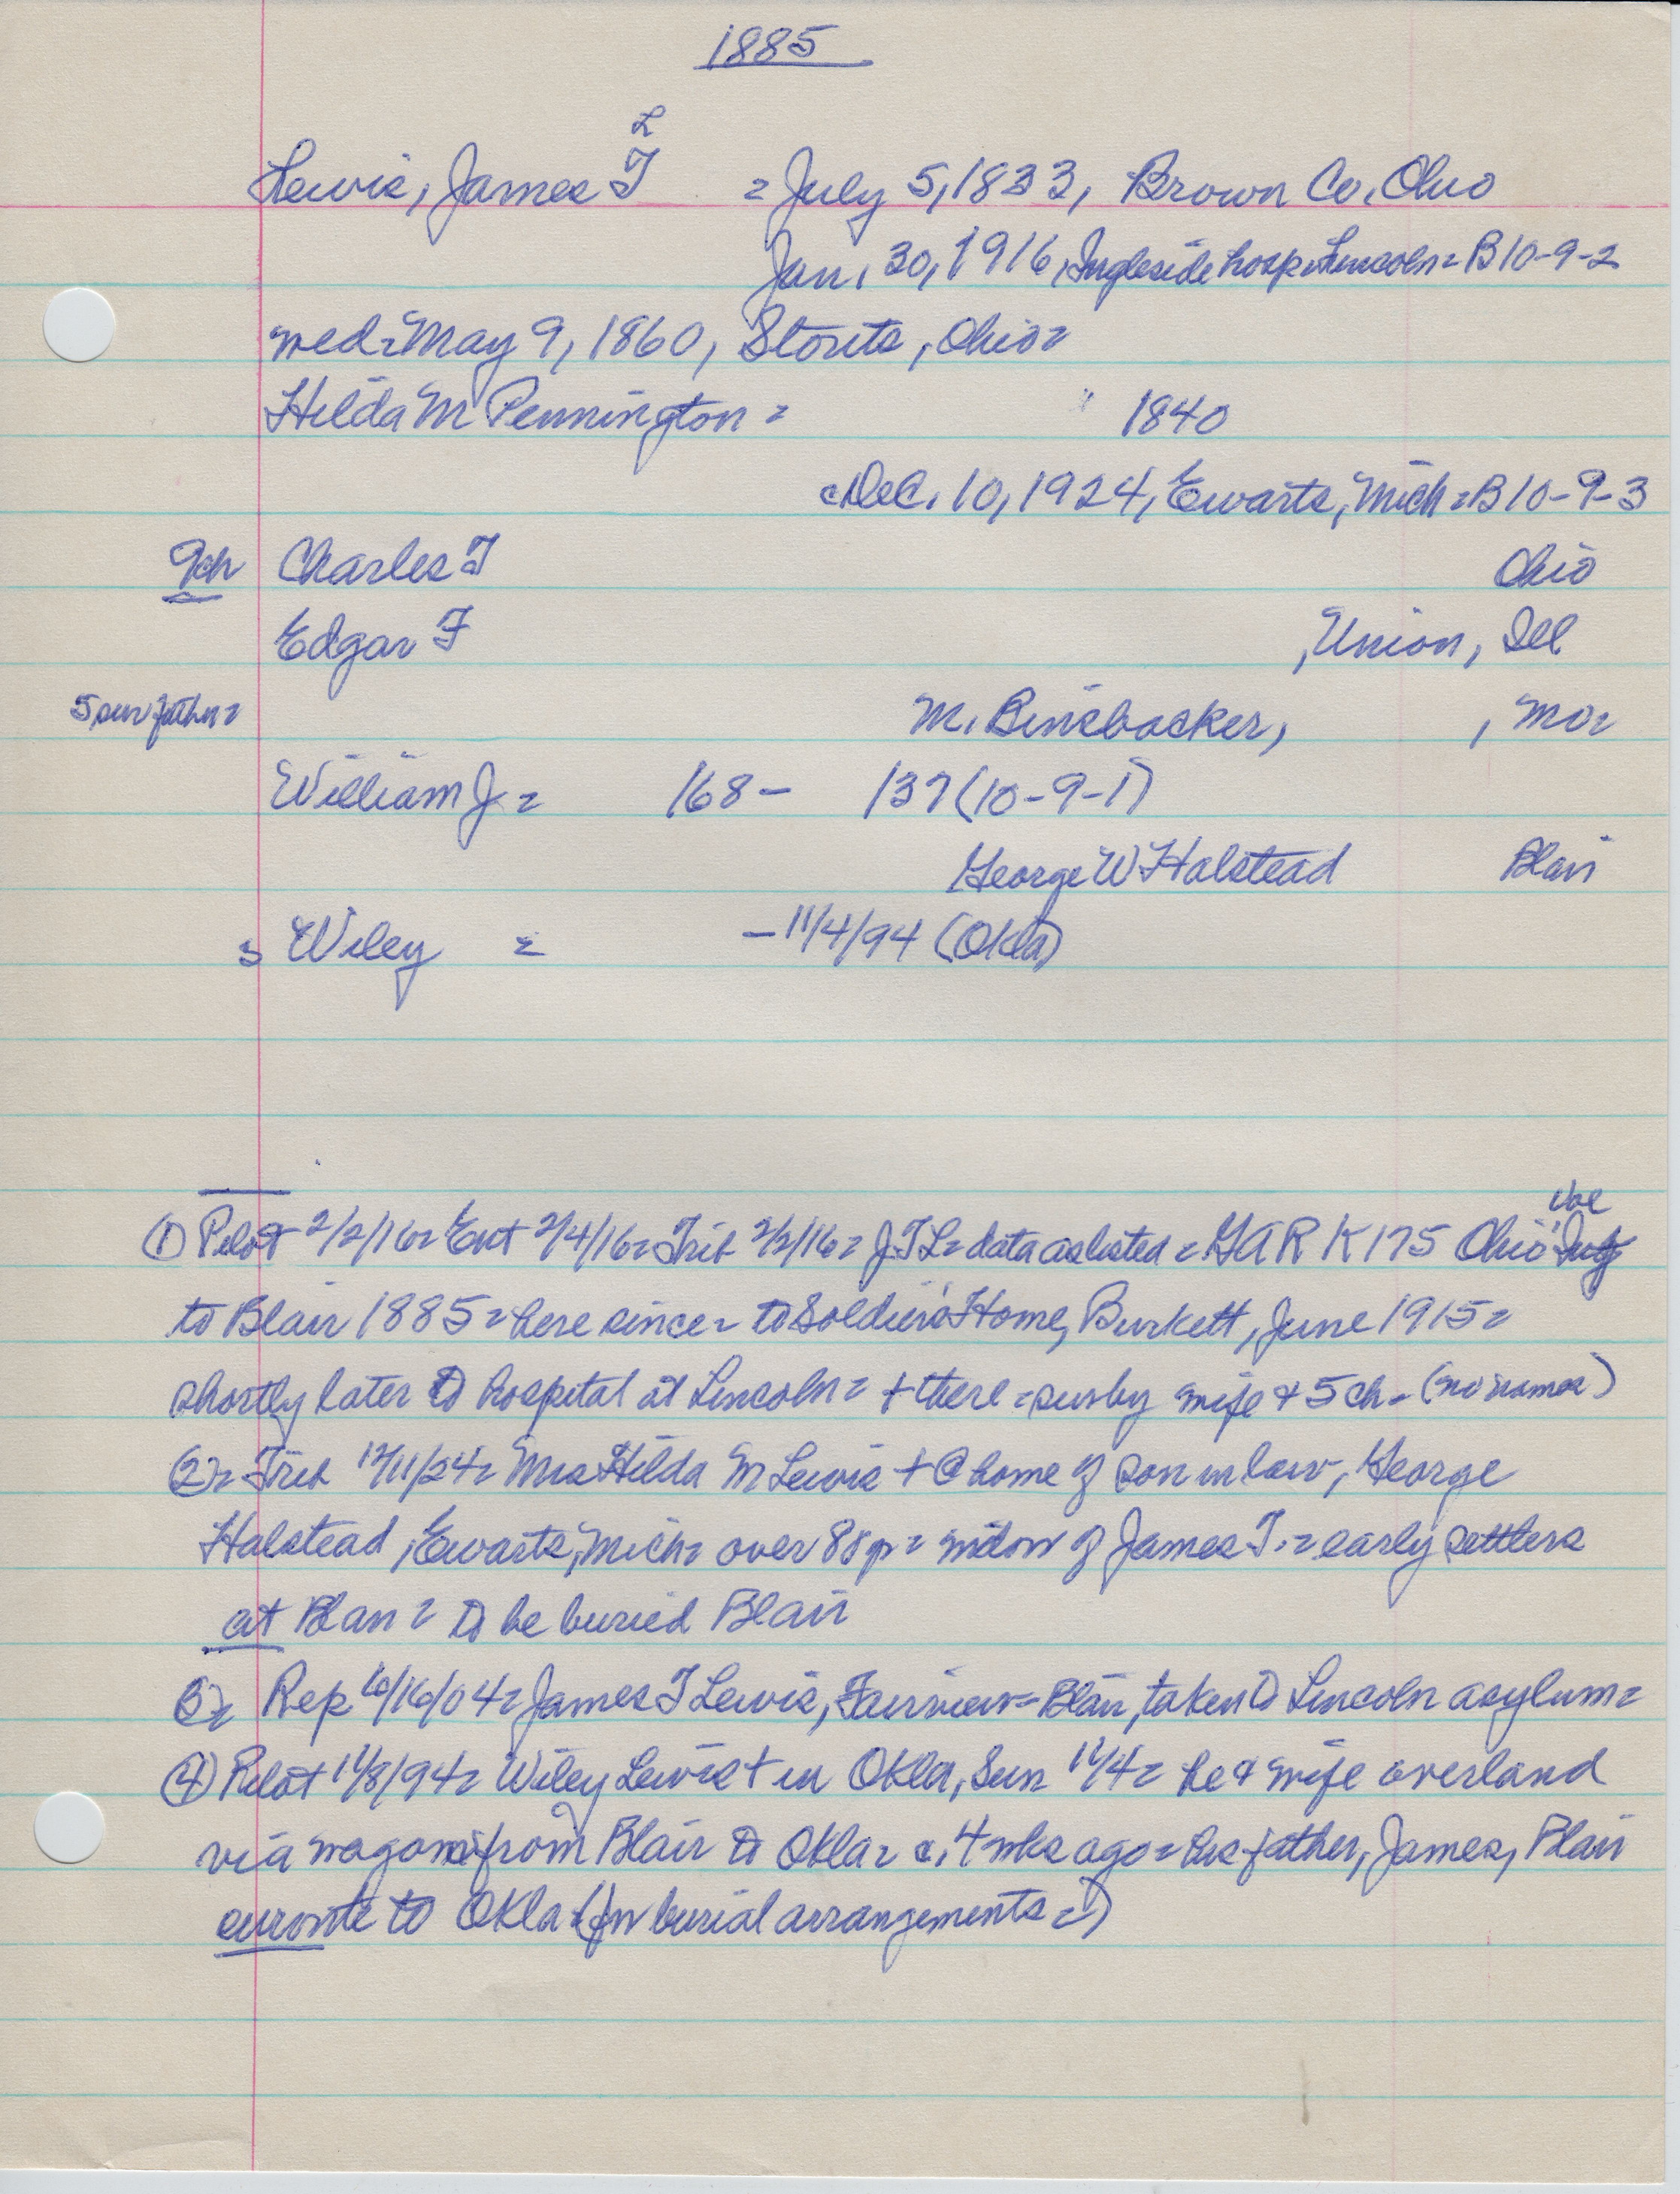 1885
L
Lewis, James T = July 5, 1833, Brown Co, Ohio
Jan. 30, 1916, Ingleside hosp, Lincoln = B 10-9-2
med = May 9, 1860, Stouts, Ohio =
Hilda M Pennington = 1840
Dec. 10, 1924, Ewarts, Mich = B 10-9-3
9ch Charles T Ohio
Edgar F , Union, Ill
5 sur father = M. , Mo =
William J = 168- 137 (10-9-1)
George W Halstead Blair
Wiley = - 11/4/94 (Okla)
Vol
① Pilot 2/2/16 = Ent 2/4/16 = Trib 2/2/16 = JTL = data as listed = GAR K 175 Ohio Inf
to Blair 1885 = here since = to Soldiers' Home, Burkett, June 1915 =
shortly later to hospital at Lincoln = + there = sur by wife & 5 ch - (no names)
② = Trib 12/11/24 = Mrs Hilda M Lewis + @ home of son in law, George
Halstead, Ewarts, Mich = over 80 = widow of James T. = early settlers
at Blair = to be buried Blair
3 = Rep 6/16/04 = James T Lewis, Fairview = Blair, taken to Lincoln asylum =
④ Pilot 11/8/94 = Wiley Lewis + in Okla, Sun 11/4 = he & wife overland
via wagon from Blair to Okla = c. 4 wks ago = his father, James, Blair
enroute to Okla (for burial arrangements = )